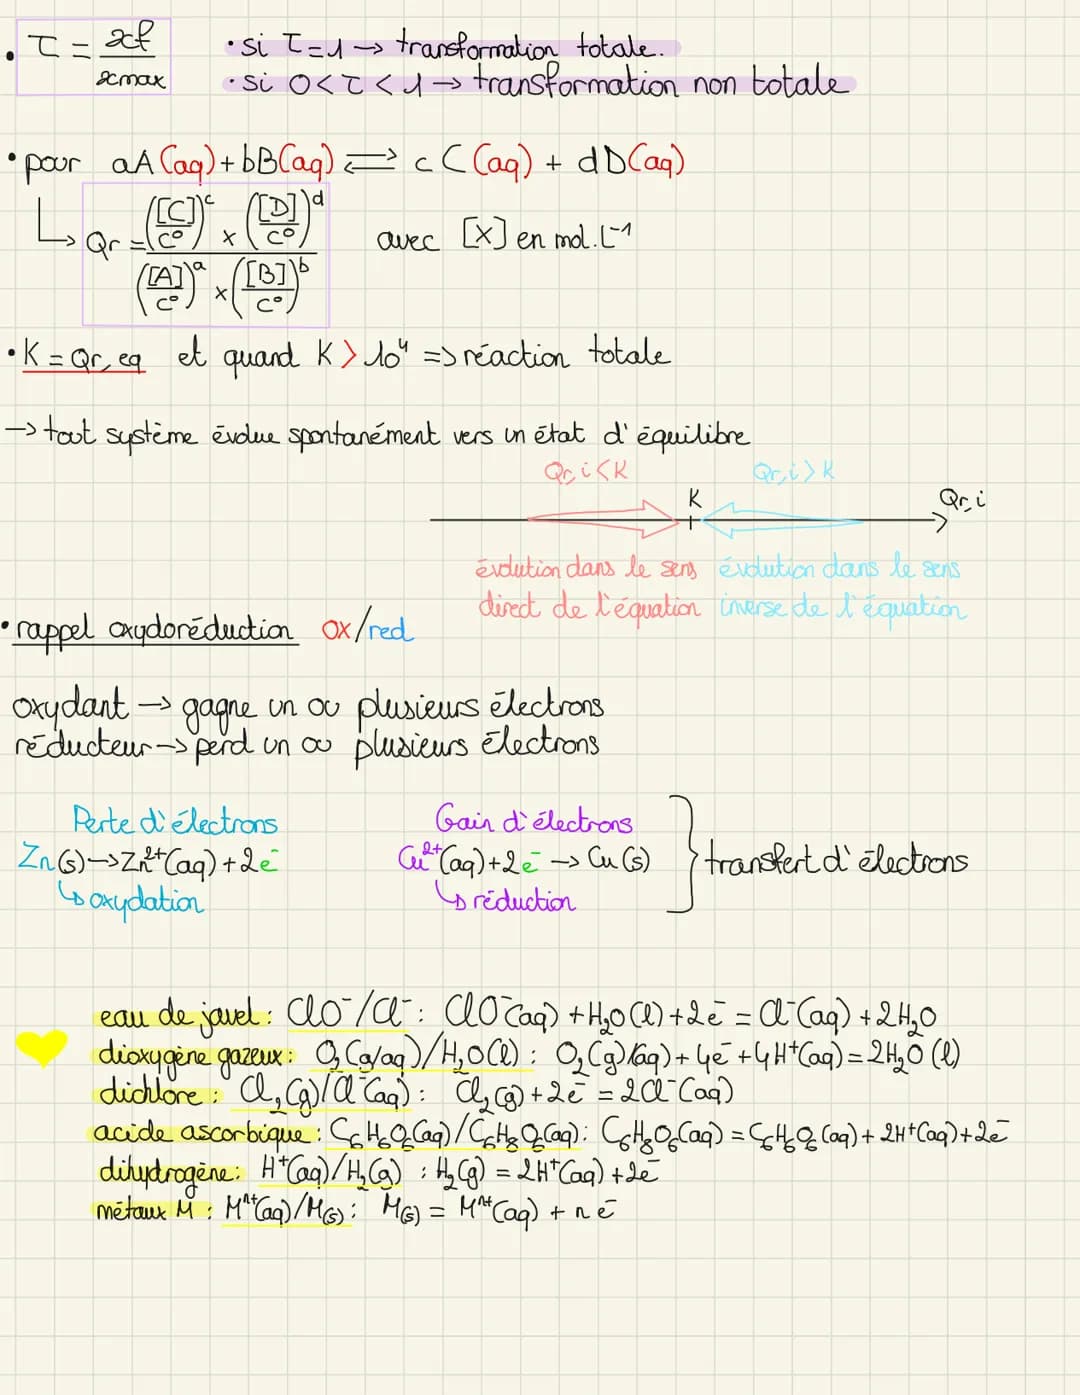 • τ = xf / xmax
• si τ = 1 → transformation totale.
• si 0 < τ < 1 → transformation non totale
• pour aA(aq) + bB(aq) ⇌ cC(aq) + dD(aq)
↳ Qr = (([C]/c°)^c × ([D]/c°)^d) / (([A]/c°)^a × ([B]/c°)^b) avec [X] en mol.L⁻¹
• K = Qr,eq et quand K > 10⁴ => réaction totale
→ tout système évolue spontanément vers un état d'équilibre
Qr,i < K Qr,i > K
K Qr,i
évolution dans le sens évolution dans le sens
direct de l'équation inverse de l'équation
• rappel oxydoréduction ox/red
oxydant → gagne un ou plusieurs électrons
réducteur → perd un ou plusieurs électrons
Perte d'électrons Gain d'électrons
Zn(s) → Zn²⁺(aq) + 2e⁻ Cu²⁺(aq) + 2e⁻ → Cu(s) } transfert d'électrons
↳ oxydation ↳ réduction
eau de javel : ClO⁻/Cl⁻ : ClO⁻(aq) + H₂O(l) + 2e⁻ = Cl⁻(aq) + 2H₂O
dioxygène gazeux : O₂(g/aq)/H₂O(l) : O₂(g)/(aq) + 4e⁻ + 4H⁺(aq) = 2H₂O(l)
dichlore : Cl₂(g)/Cl⁻(aq) : Cl₂(g) + 2e⁻ = 2Cl⁻(aq)
acide ascorbique : C₆H₆O₆(aq)/C₆H₈O₆(aq) : C₆H₈O₆(aq) = C₆H₆O₆(aq) + 2H⁺(aq) + 2e⁻
dihydrogène : H⁺(aq)/H₂(g) : H₂(g) = 2H⁺(aq) + 2e⁻
métaux M : Mⁿ⁺(aq)/M(s) : M(s) = Mⁿ⁺(aq) + n e⁻